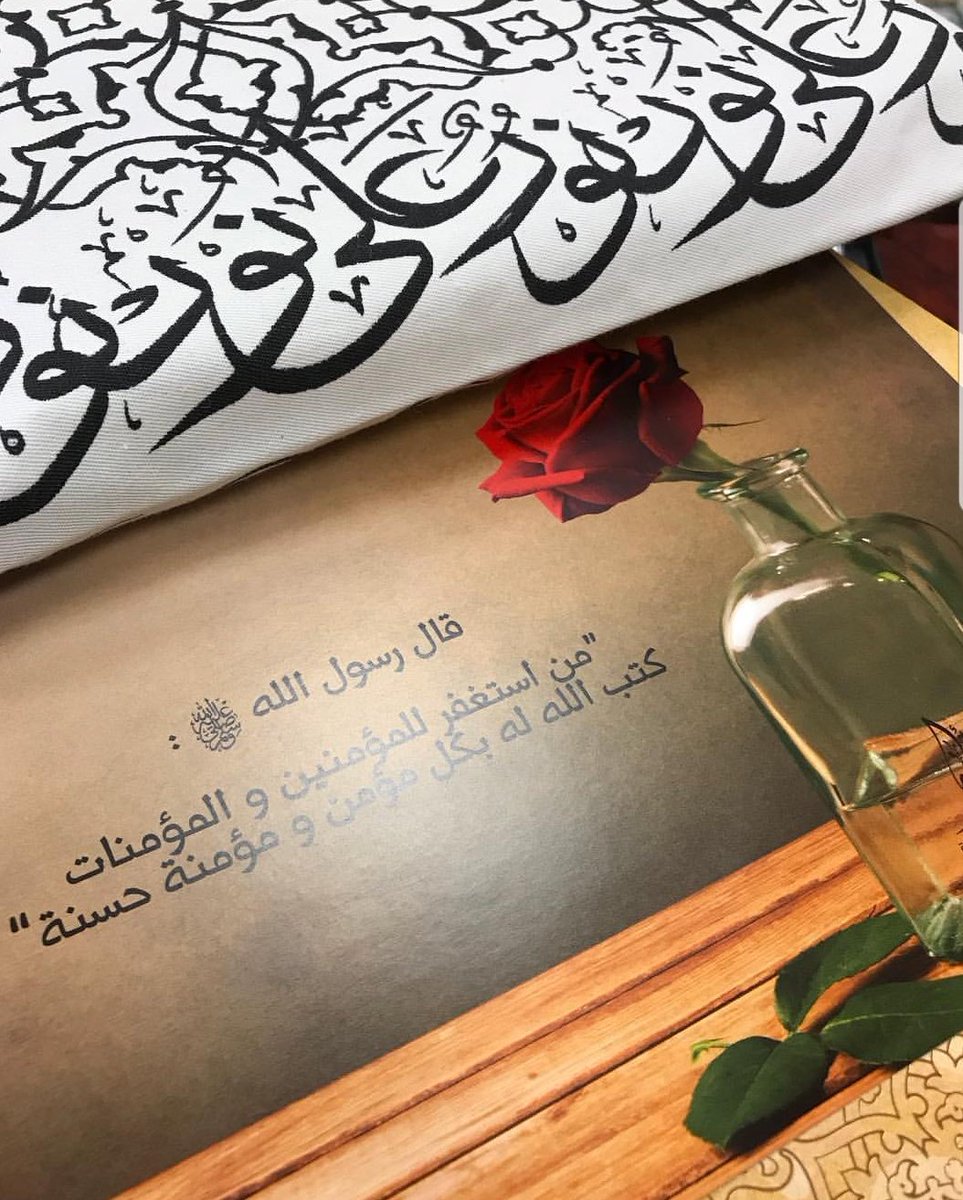 نور على نور
قال رسول الله ﷺ :
"من استغفر للمؤمنين و المؤمنات
كتب الله له بكل مؤمن و مؤمنة حسنة"